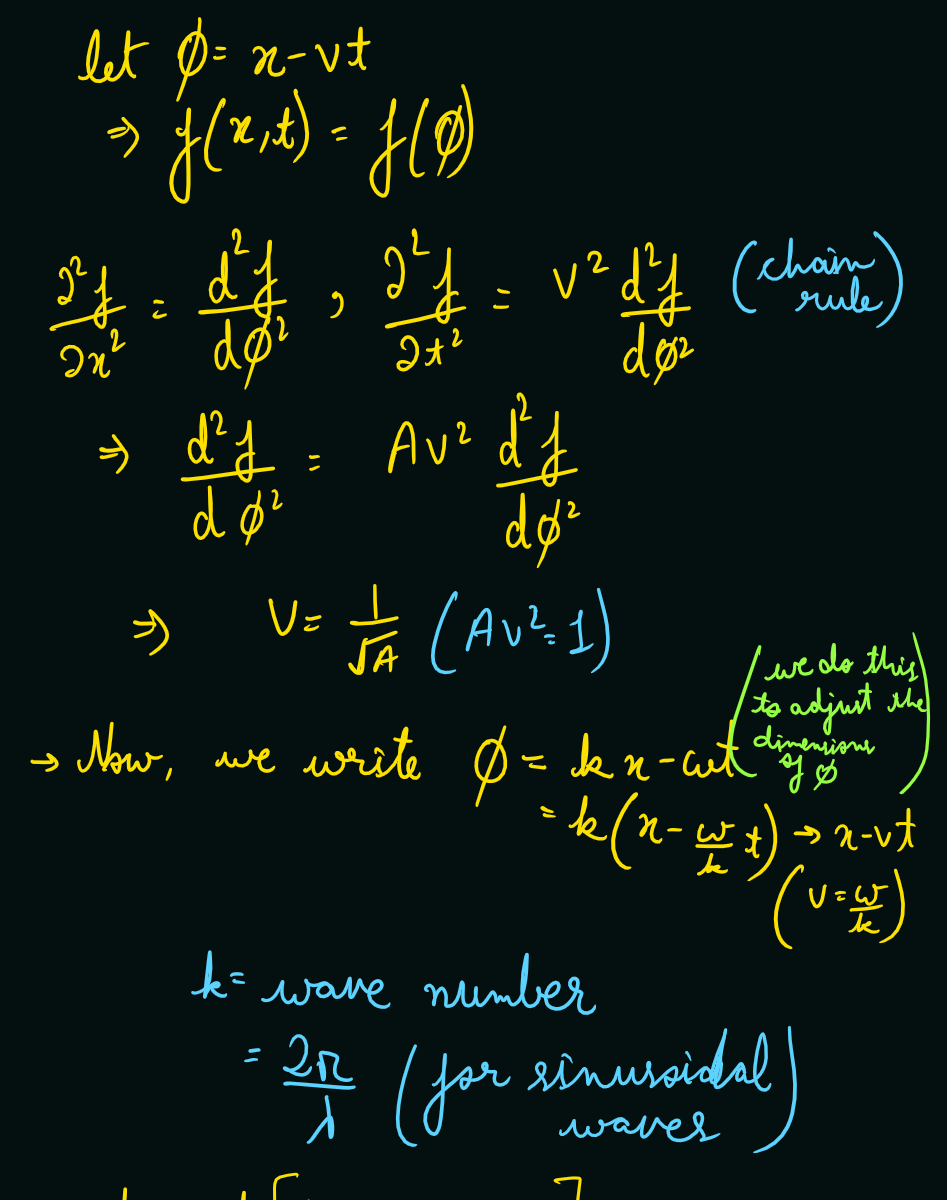 let ϕ = x - vt
⇒ f(x,t) = f(ϕ)
∂²f/∂x² = d²f/dϕ² , ∂²f/∂t² = v² d²f/dϕ² (chain rule)
⇒ d²f/dϕ² = Av² d²f/dϕ²
⇒ v = 1/√A (Av² = 1)
→ Now, we write ϕ = kx - ωt (we do this to adjust the dimensions of ϕ)
= k(x - ω/k t) → x - vt
(v = ω/k)
k = wave number
= 2π/λ (for sinusoidal waves)